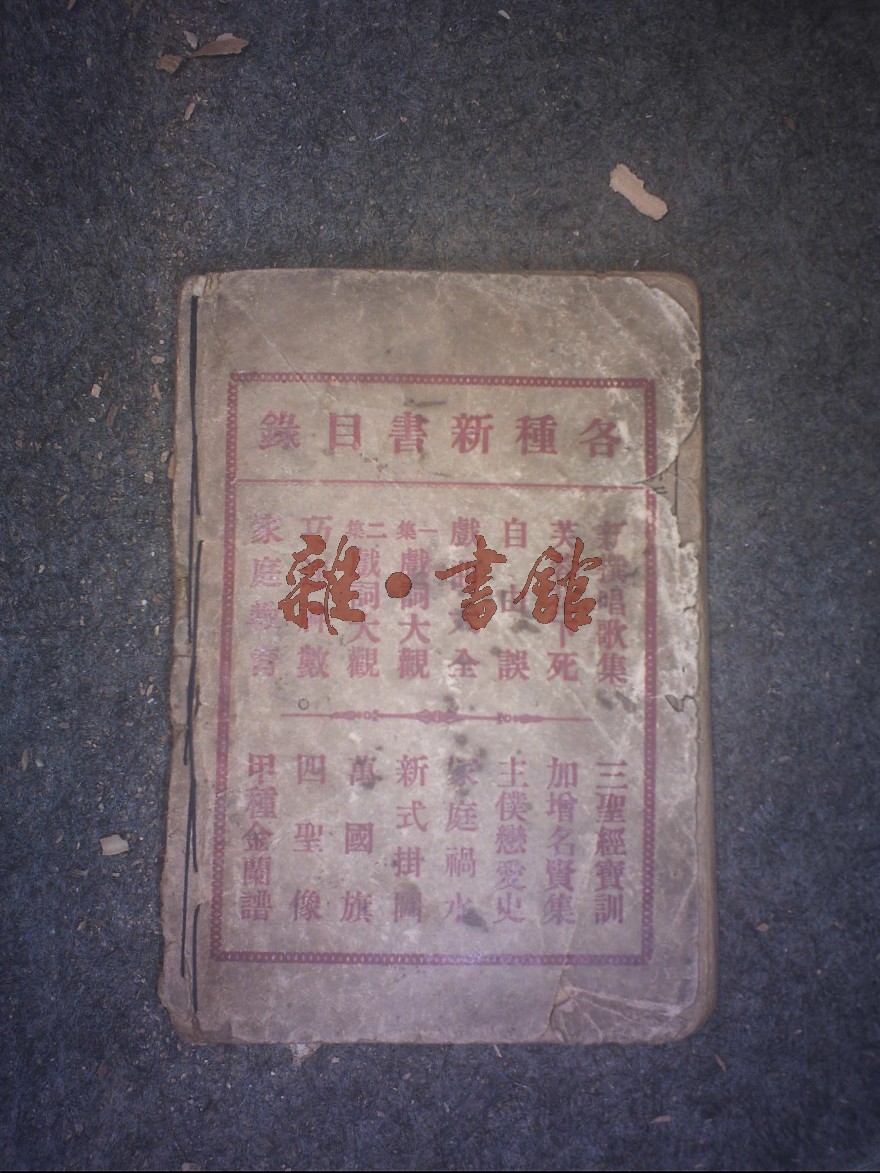 各種新書目錄
唱歌集
死
自由誤
戲全
一集戲詞大觀
二集戲詞大觀
巧數
家庭教育
三聖經寶訓
加增名賢集
主僕戀愛史
家庭禍水
新式掛圖
萬國旗
四聖像
甲種金蘭譜
雜·書館